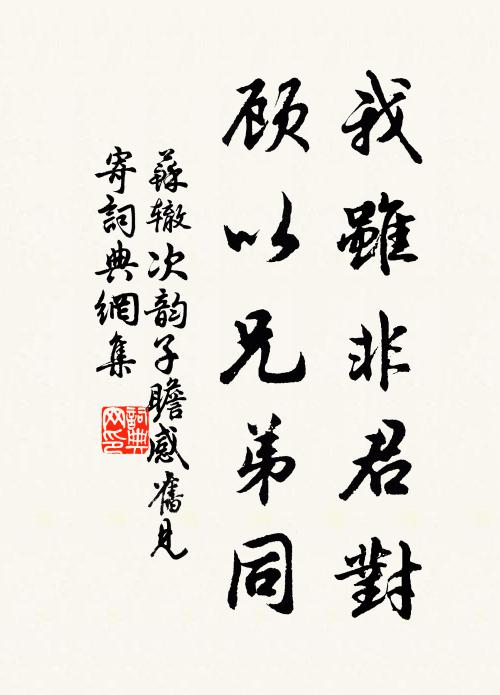 我雖非君對
顾以兄弟同
蘇辙次韵子瞻感舊見
寄詞典網集
詞典
网印